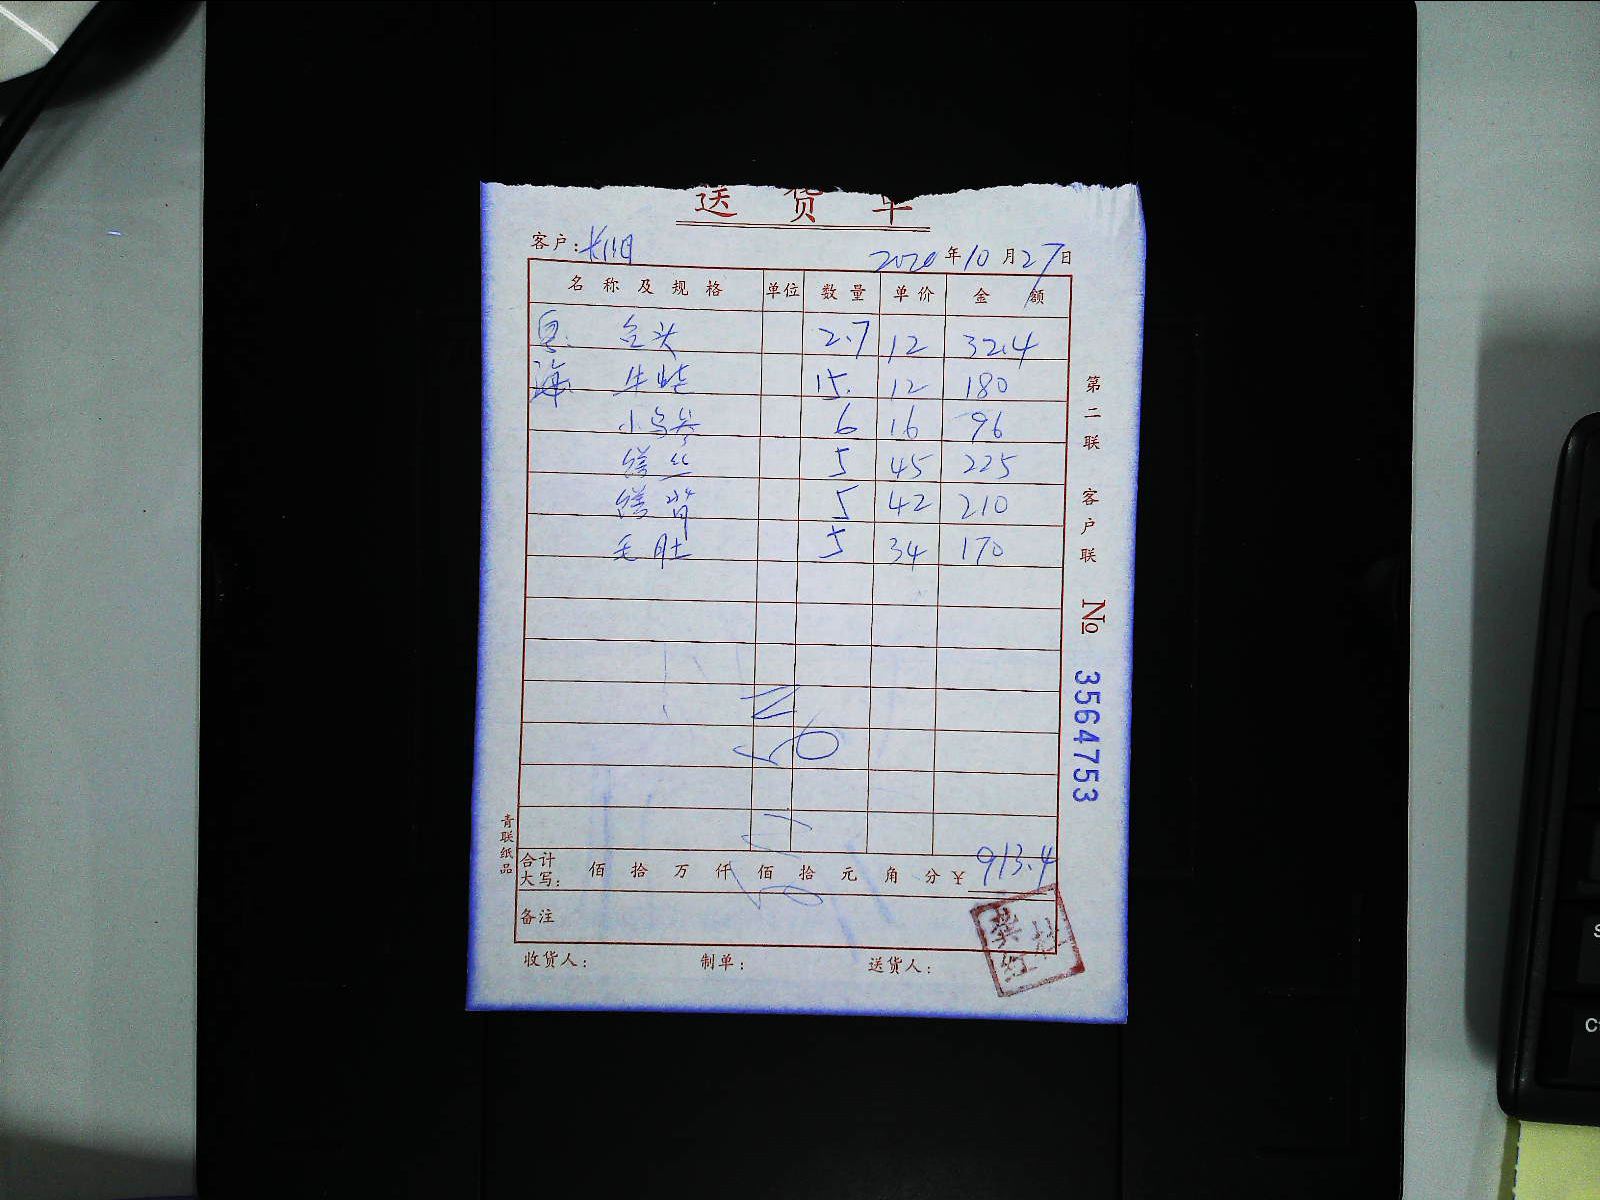 送货单
客户: 长阳 2020年10月27日
名称及规格 单位 数量 单价 金额
2.7 12 32.4
海 15. 12 180
小乌 6 16 96
鳝丝 5 45 225
鳝背 5 42 210
毛肚 5 34 170
合计大写: 佰 拾 万 仟 佰 拾 元 角 分 ¥ 913.4
备注
收货人: 制单: 送货人:
龚红
第二联 客户联
No 3564753
青联纸品